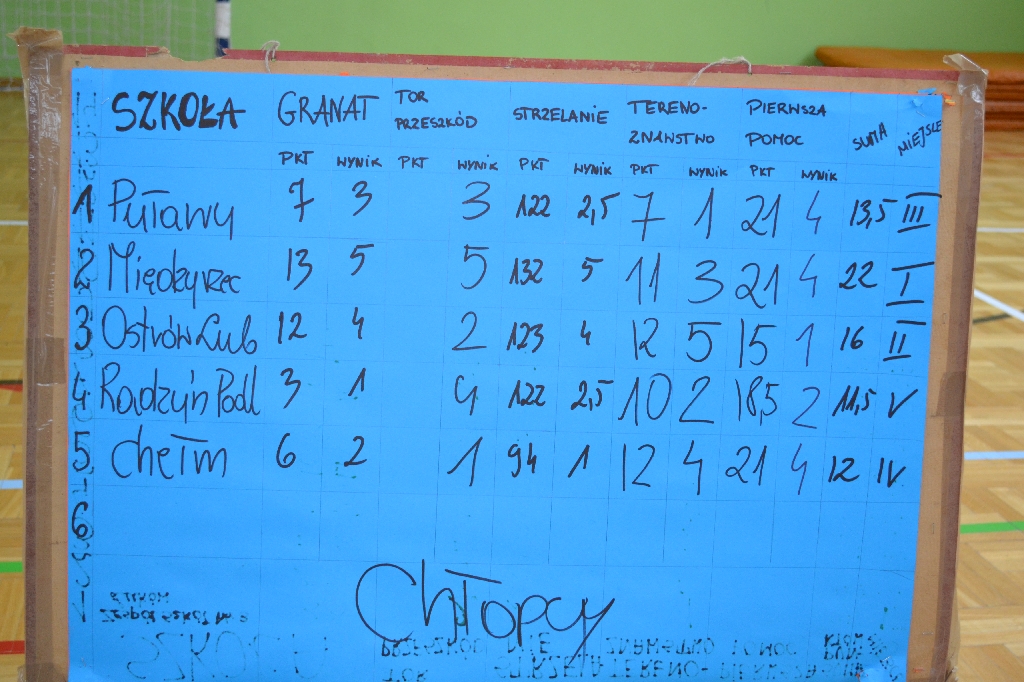 SZKOŁA GRANAT TOR PRZESZKÓD STRZELANIE TERENO-ZNAWSTWO PIERWSZA POMOC SUMA MIEJSCE
PKT WYNIK PKT WYNIK PKT WYNIK PKT WYNIK PKT WYNIK
1 Puławy 7 3 3 122 2,5 7 1 21 4 13,5 III
2 Międzyrzec 13 5 5 132 5 11 3 21 4 22 I
3 Ostrów Lub 12 4 2 123 4 12 5 15 1 16 II
4 Radzyń Podl 3 1 4 122 2,5 10 2 18,5 2 11,5 V
5 Chełm 6 2 1 94 1 12 4 21 4 12 IV
6
Chłopcy